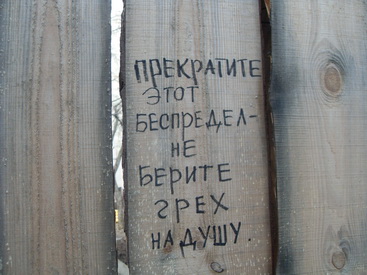 ПРЕКРАТИТЕ
ЭТОТ
БЕСПРЕДЕЛ-
НЕ
БЕРИТЕ
ГРЕХ
НА ДУШУ.